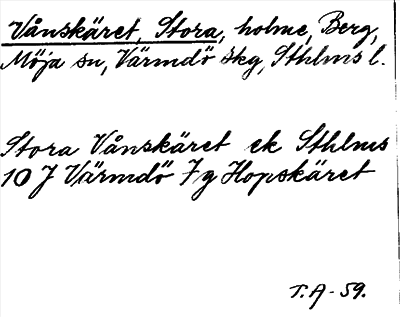 Vånskäret, Stora, holme, Berg,
Möja sn, Värmdö skg, Sthlms l.
Stora Vånskäret ek Sthlms
10 J Värmdö 7 g Hopskäret
T.A - 59.